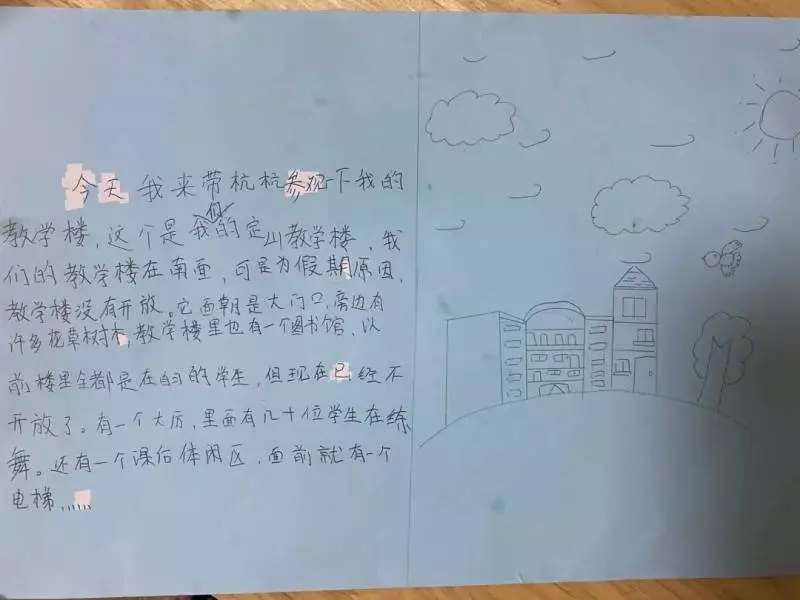 今天我来带杭杭参观一下我的
教学楼，这个是我们的定山教学楼，我
们的教学楼在南面，可是为假期原因，
教学楼没有开放。它面朝是大门口，旁边有
许多花草树木，教学楼里也有一个图书馆，以
前楼里全都是在自习的学生，但现在已经不
开放了。有一个大厅，里面有几十位学生在练
舞。还有一个课后休闲区，面前就有一个
电梯……